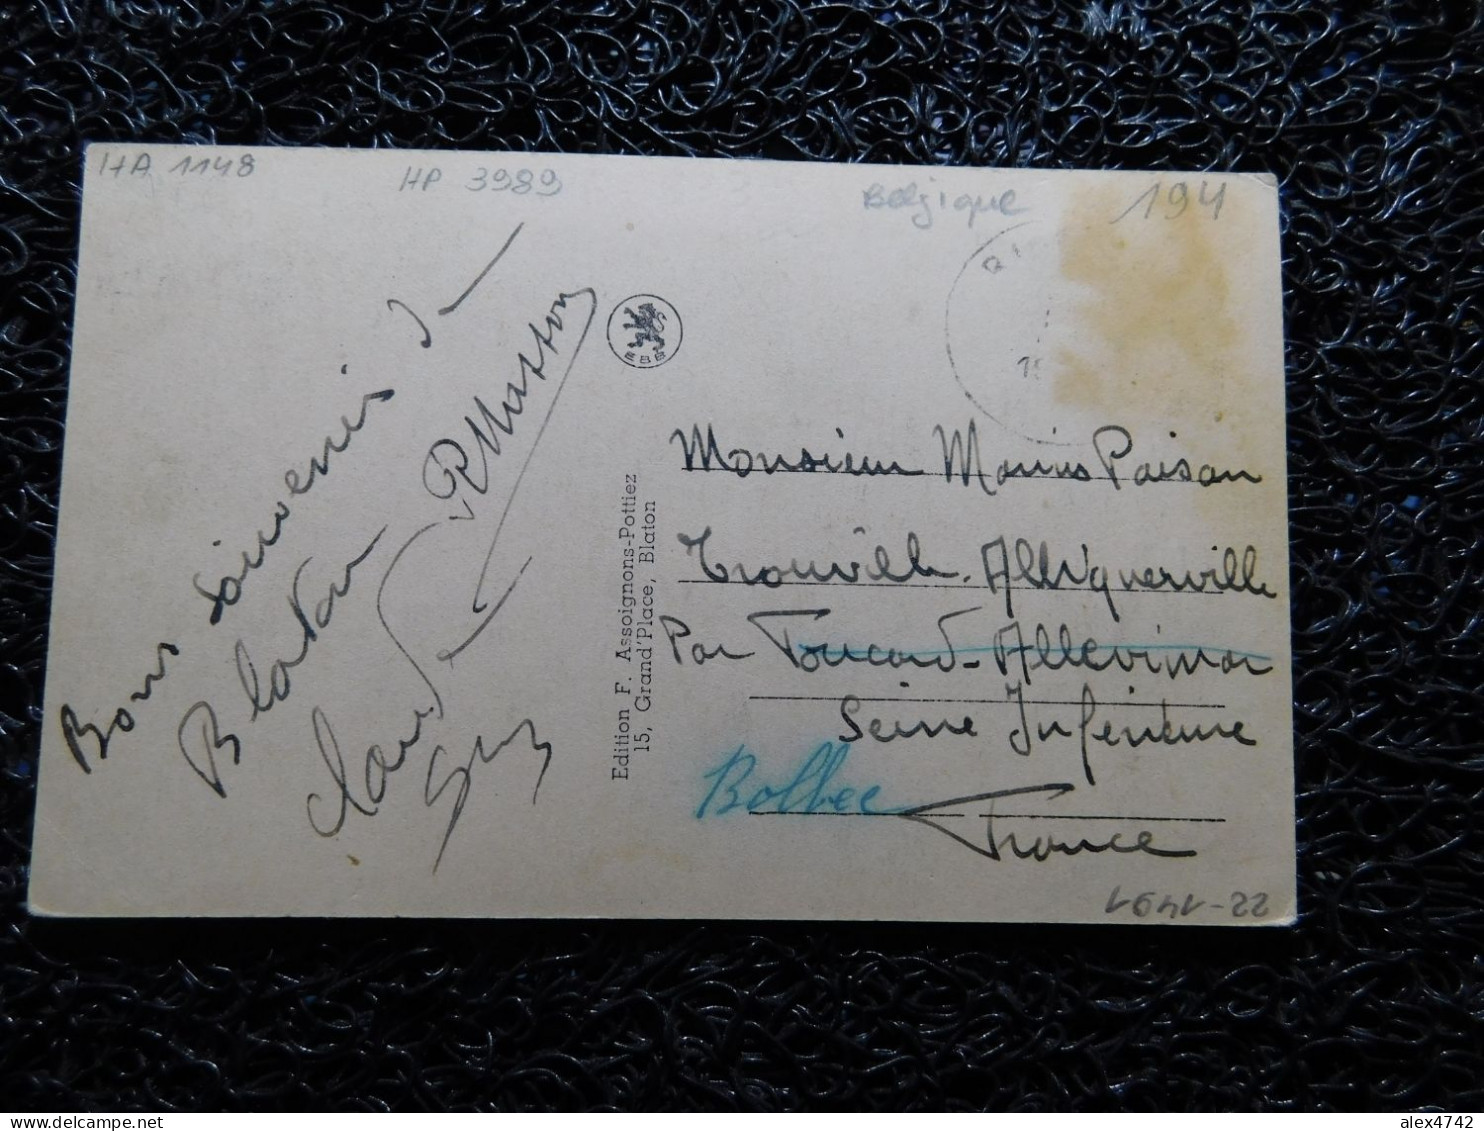 HA 1148
HP 3989
Belgique
194
Bons souvenirs de
Blaton
P Musson
Claude
Guy
EBB
Edition F. Assoignons-Pottiez
15, Grand'Place, Blaton
Monsieur Marius Paisan
Trouville-Alliquerville
Par Foucard-Allevimar
Seine Inférieure
Bolbec
France
22-1491
alex4742